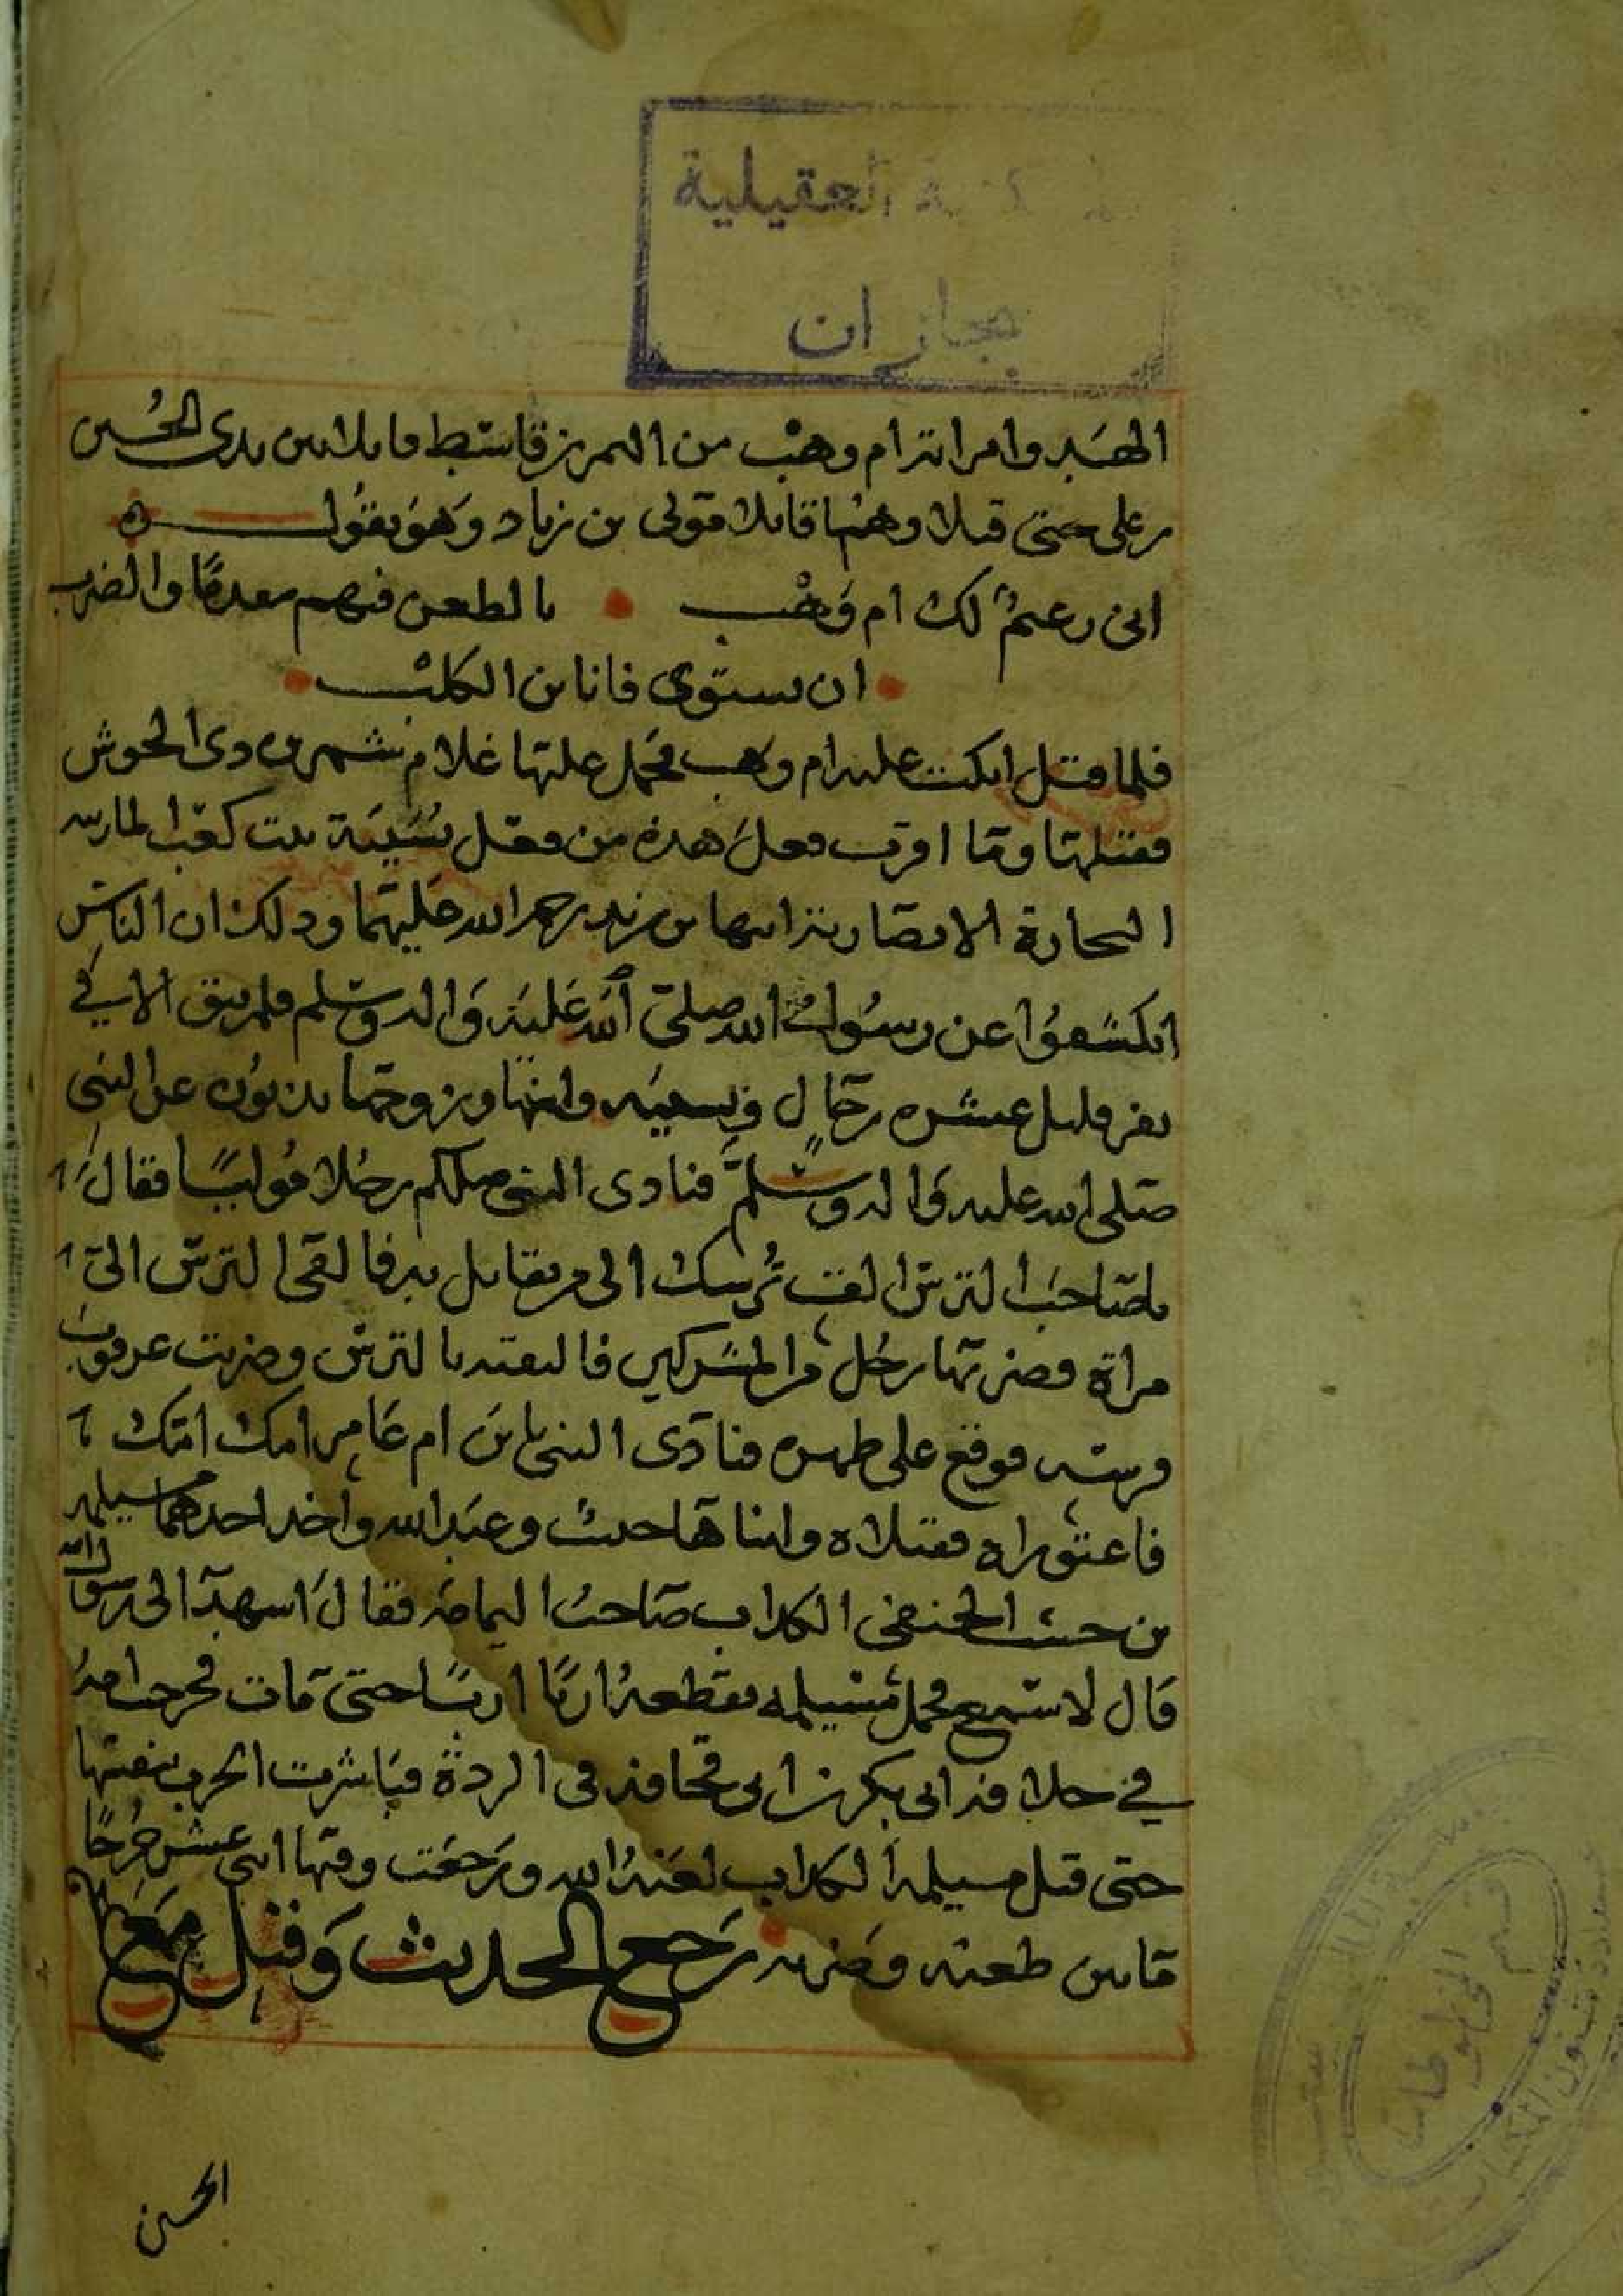 العقيلية
بجازان
الهند وامراته ام وهب من النمر بن قاسط قاتلا بين يدى الحسين
بن على حتى قتلا وهما قاتلا مولى بن زياد وهو يقول
انى زعيم لك ام وهب بالطعن فيهم مقدما والضرب
ان يستوى فانا بن الكلب
فلما قتل انكبت عليه ام وهب فحمل عليها غلام شمر بن ذى الجوش
فقتلها وما اقرب فعل هذه من فعل نسيبة بنت كعب المازنيه
الانصاريه ابنها بن زيد رحمه الله عليهما وذلك ان الناس
انكشفوا عن رسول الله صلى الله عليه واله وسلم فلم يبق الا في
نفر قليل عشره رجال ونسيبه وابنها وزوجها يذبون عن النبى
صلى الله عليه واله وسلم فنادى النبى صللم رجلا موليا فقال
يا صاحب الترس الق ترسك الى من يقاتل به فالقى الترس الى
مراة فضربها رجل من المشركين فاتقته بالترس وضربت عرقوب
فرسه فوقع على ظهره فنادى النبى يابن ام عامر امك امك
فاعتوراه فقتلاه وابناها حبيب وعبد الله واخذ احدهما مسيلمه
بن حبيب الحنفى الكذاب صاحب اليمامه فقال اشهد انى رسول الله
قال لا اسمع فجعل مسيلمه يقطعه اربا اربا حتى مات فخرجت امه
في خلافه ابى بكر بن ابى قحافه فى الردة فباشرت الحرب بنفسها
حتى قتل مسيلمه الكذاب لعنه الله ورجعت وفيها اثنى عشر جرحا
مابين طعنه وضربه رجع الحديث وقتل مع
الحسن
قسم المخطوطات